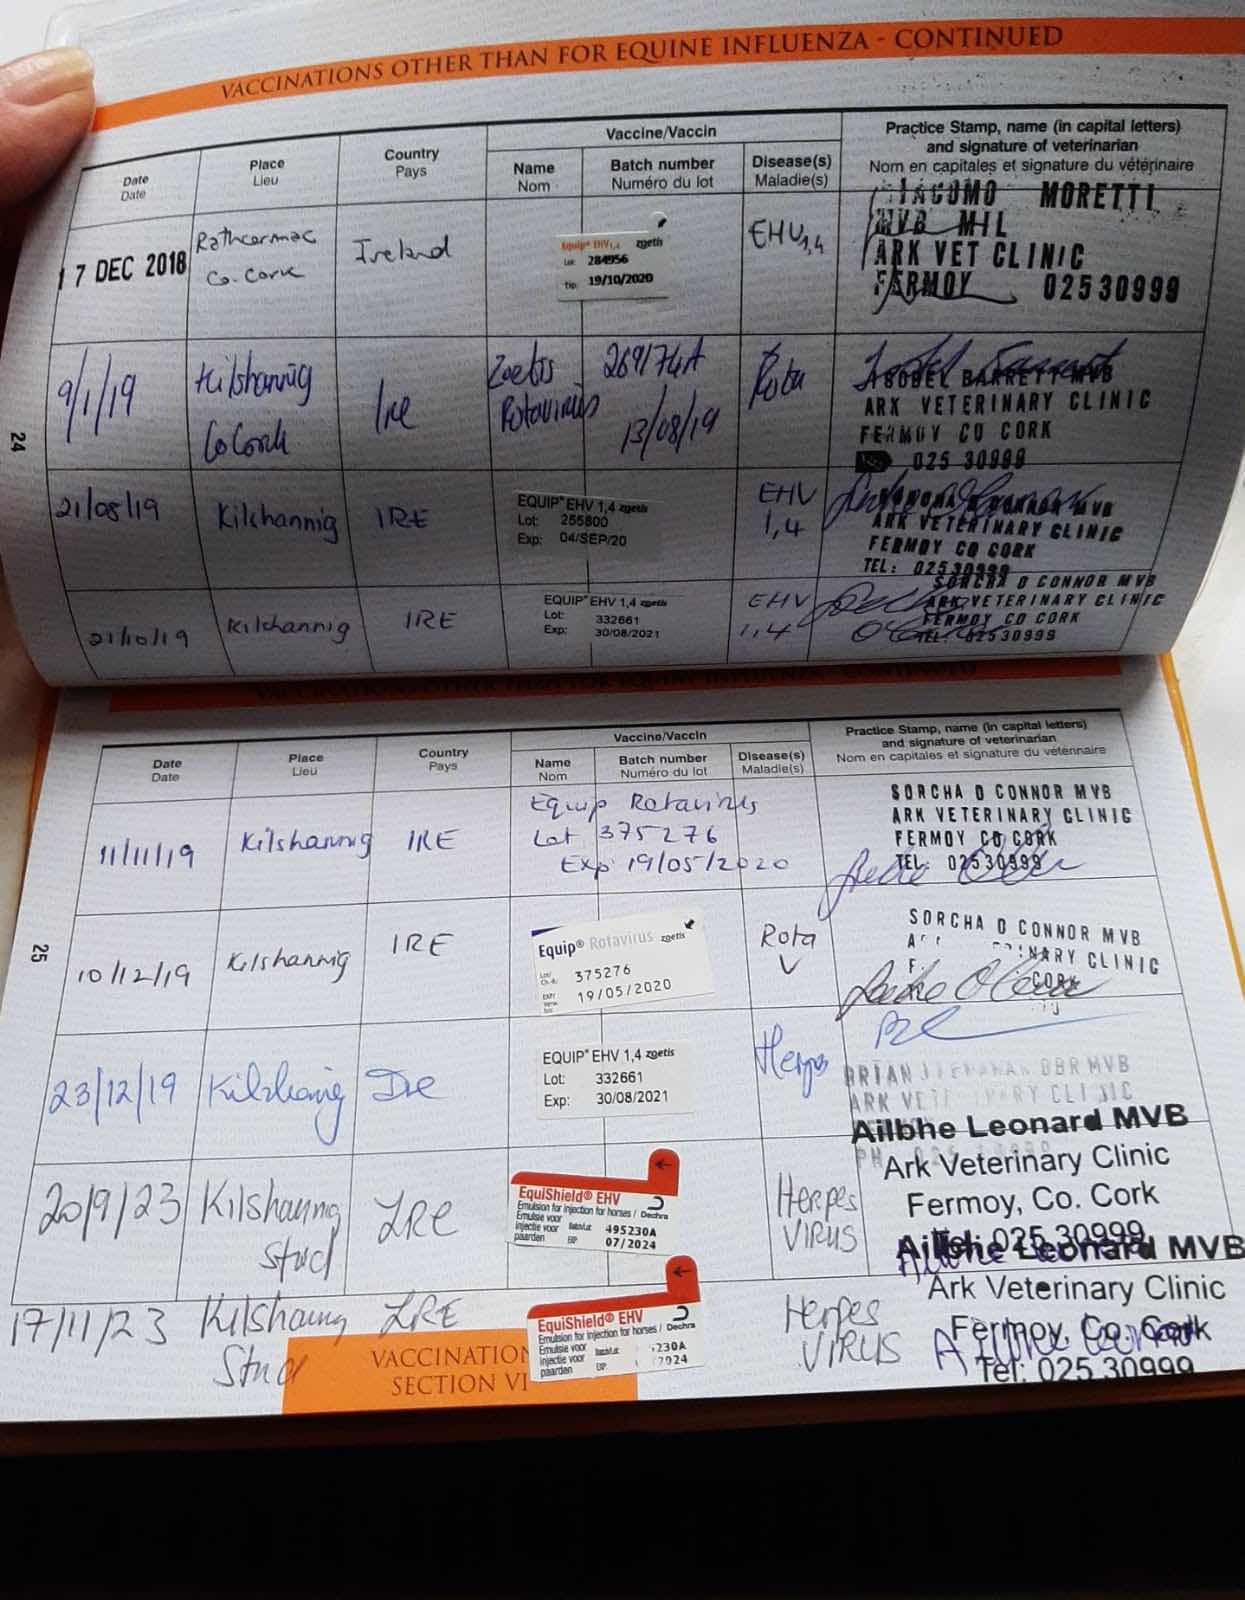 VACCINATIONS OTHER THAN FOR EQUINE INFLUENZA - CONTINUED
Date
Date
Place
Lieu
Country
Pays
Vaccine/Vaccin
Name
Nom
Batch number
Numéro du lot
Disease(s)
Maladie(s)
Practice Stamp, name (in capital letters)
and signature of veterinarian
Nom en capitales et signature du vétérinaire
17 DEC 2018
Rathcormac
Co. Cork
Ireland
Equip® EHV1,4 zoetis
284956
19/10/2020
EHV1,4
GIACOMO MORETTI
MVB MIL
ARK VET CLINIC
FERMOY 02530999
9/1/19
Kilshannig
Co Cork
Ire
Zoetis
Rotavirus
269174A
13/08/19
Rota
ISOBEL BARRETT MVB
ARK VETERINARY CLINIC
FERMOY CO CORK
025 30999
24
21/05/19
Kilshannig
IRE
EQUIP® EHV 1,4 zoetis
Lot: 255800
Exp: 04/SEP/20
EHV
1,4
SORCHA O CONNOR MVB
ARK VETERINARY CLINIC
FERMOY CO CORK
TEL: 02530999
21/10/19
Kilshannig
IRE
EQUIP® EHV 1,4 zoetis
Lot: 332661
Exp: 30/08/2021
EHV
1,4
SORCHA O CONNOR MVB
ARK VETERINARY CLINIC
FERMOY CO CORK
TEL: 02530999
VACCINATIONS OTHER THAN FOR EQUINE INFLUENZA - CONTINUED
Date
Date
Place
Lieu
Country
Pays
Vaccine/Vaccin
Name
Nom
Batch number
Numéro du lot
Disease(s)
Maladie(s)
Practice Stamp, name (in capital letters)
and signature of veterinarian
Nom en capitales et signature du vétérinaire
11/11/19
Kilshannig
IRE
Equip Rotavirus
Lot 375276
Exp 19/05/2020
SORCHA O CONNOR MVB
ARK VETERINARY CLINIC
FERMOY CO CORK
TEL: 02530999
25
10/12/19
Kilshannig
IRE
Equip® Rotavirus zoetis
375276
19/05/2020
Rota
V
SORCHA O CONNOR MVB
CLINIC
CORK
23/12/19
Kilshannig
Ire
EQUIP® EHV 1,4 zoetis
Lot: 332661
Exp: 30/08/2021
Herpes
BRIAN
ARK
20/9/23
Kilshannig
Stud
IRE
EquiShield® EHV
Emulsion for injection for horses /
Emulsie voor
injectie voor
paarden
Dechra
Batch/Lot 495230A
EXP 07/2024
Herpes
VIRUS
Ailbhe Leonard MVB
Ark Veterinary Clinic
Fermoy, Co. Cork
Tel: 025 30999
17/11/23
Kilshannig
Stud
IRE
EquiShield® EHV
Emulsion for injection for horses /
Emulsie voor
injectie voor
paarden
Dechra
Batch/Lot 230A
EXP 2024
Herpes
VIRUS
Ailbhe Leonard MVB
Ark Veterinary Clinic
Fermoy, Co. Cork
Tel: 025 30999
VACCINATION
SECTION VI